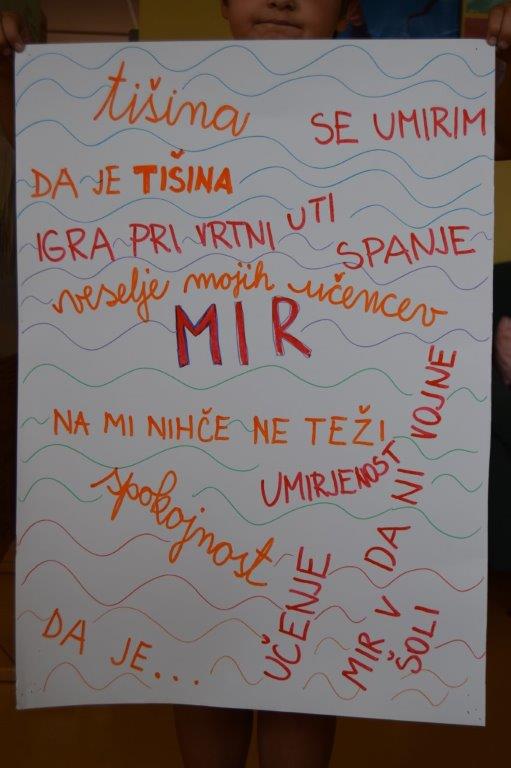 tišina
SE UMIRIM
DA JE TIŠINA
IGRA PRI VRTNI UTI
SPANJE
veselje mojih učencev
MIR
NA MI NIHČE NE TEŽI
UMIRJENOST
DA NI VOJNE
spokojnost
UČENJE
MIR V
ŠOLI
DA JE...